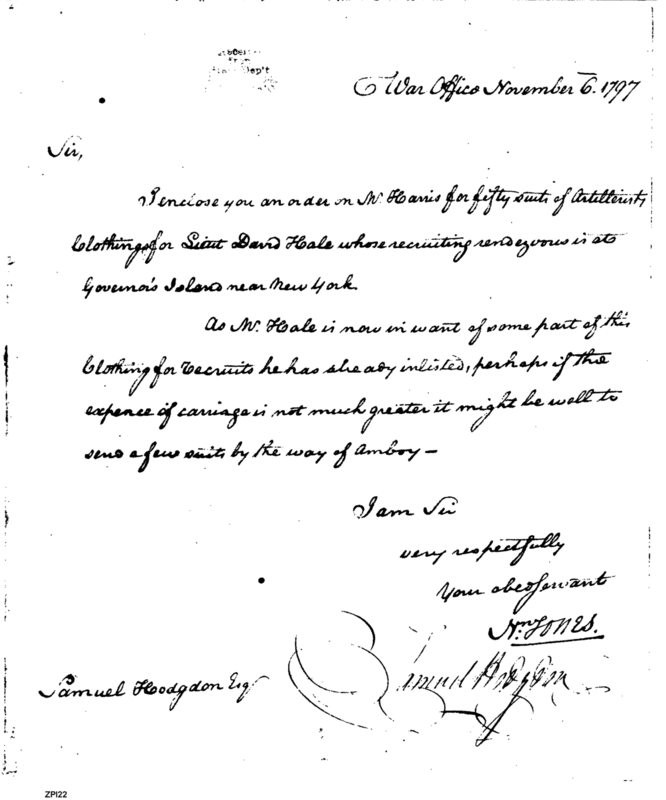 from
Dep't
War Office November 6. 1797
Sir,
I enclose you an order on Mr. Harris for fifty suits of Artillerists
Clothing for Lieut David Hale whose recruiting rendezvous is at
Governor's Island near New York.
As Mr. Hale is now in want of some part of this
Clothing for recruits he has already inlisted, perhaps if the
expence of carriage is not much greater it might be well to
send a few suits by the way of Amboy —
I am Sir
very respectfully
Your obed servant
Wm JONES.
Samuel Hodgdon
Samuel Hodgdon Esq
ZP122